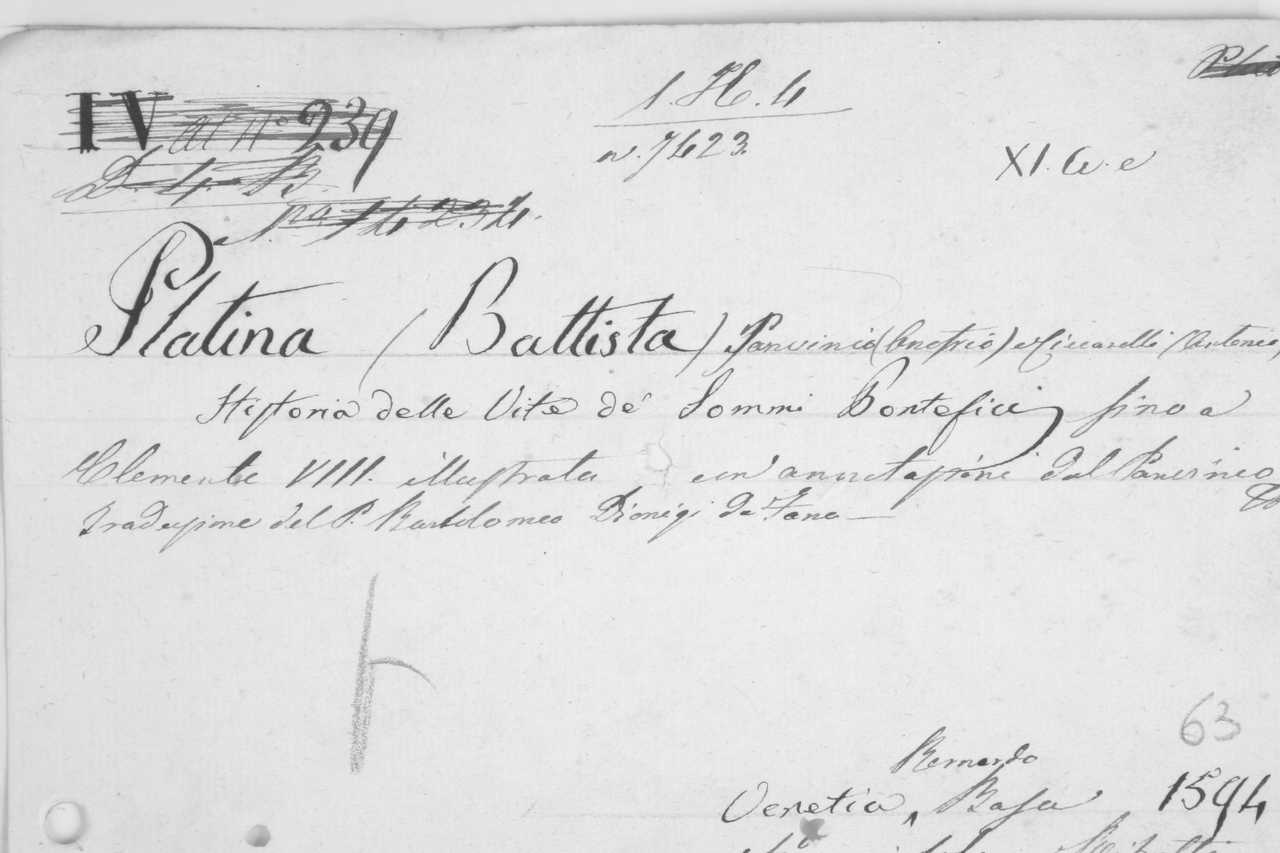 IV al n° 239
1. H. 4
n. 7423.
XI. a. e
D. 4. B.
N.ro 14234.
Platina (Battista) Panvinio (Onofrio) e Ciccarelli (Antonio)
Historia delle Vite de' Sommi Pontefici fino a
Clemente VIII. illustrata con' annotazioni dal Panvinio
traduzione del P. Bartolomeo Dionigi da Fano —
63
Bernardo
Venetia, Basa 1594